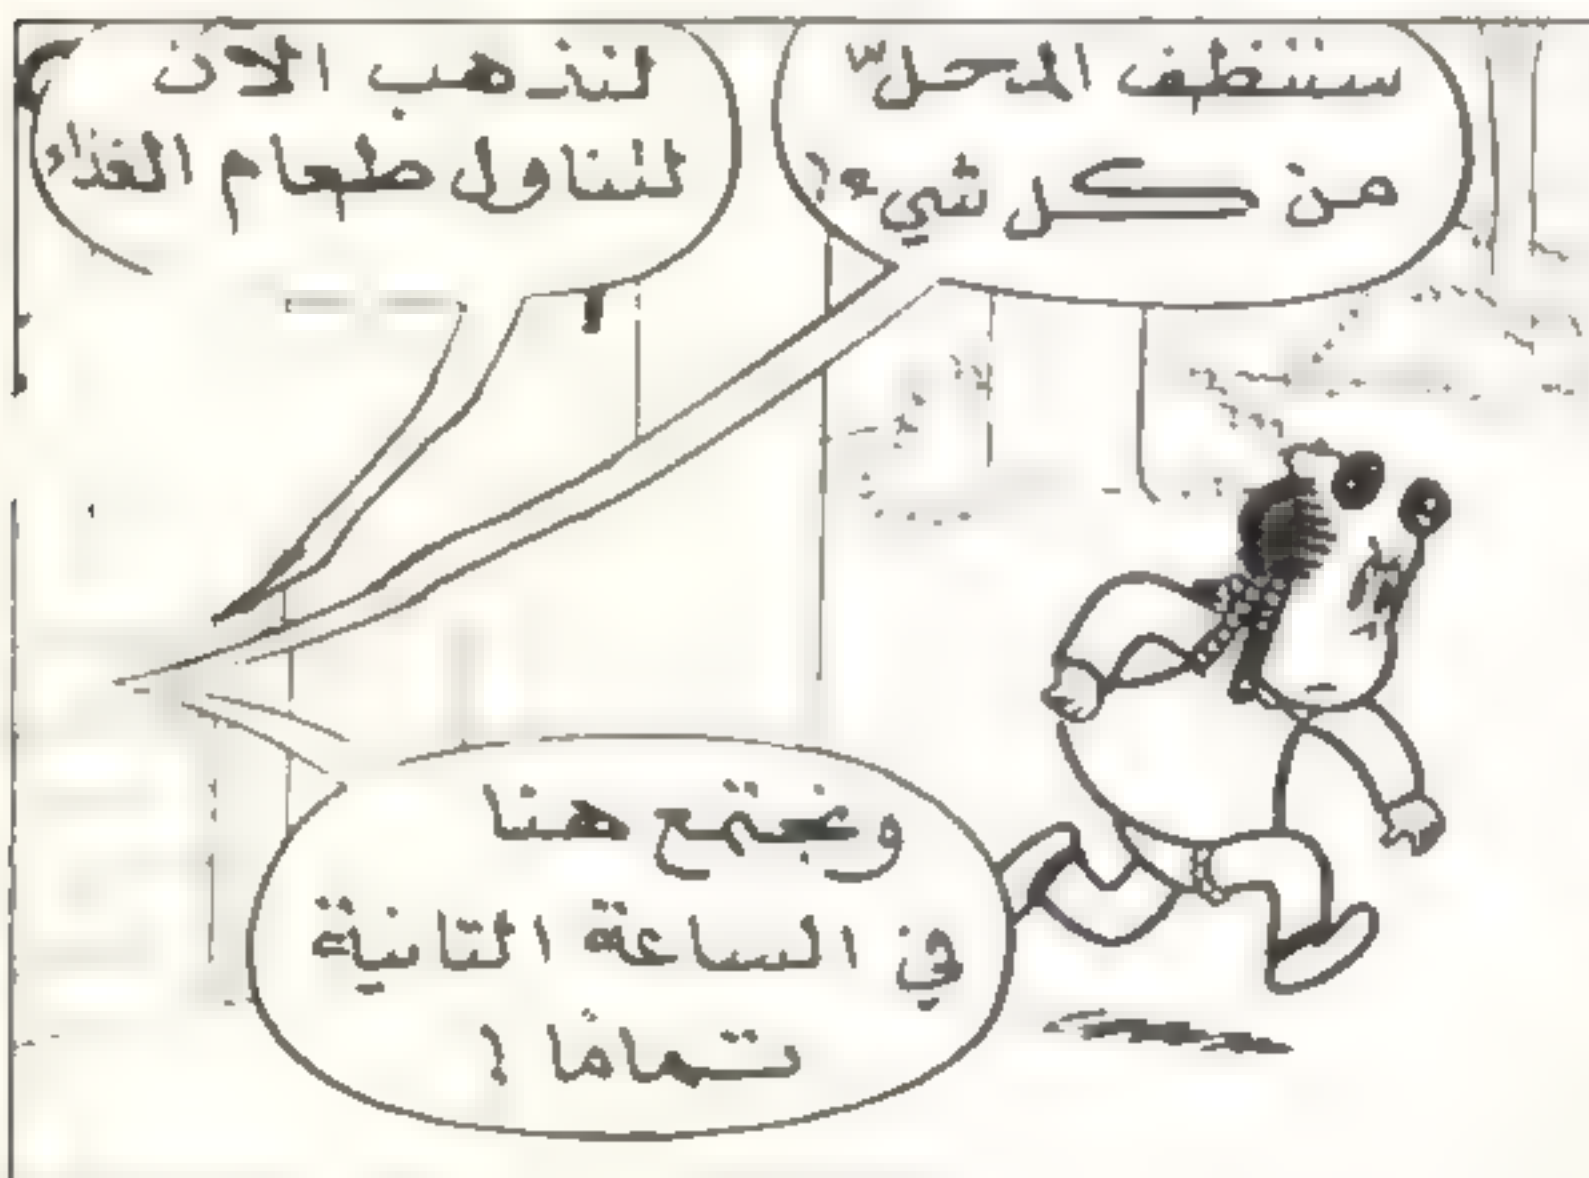 سننظف المحلّ
من كل شيء!
لنذهب الآن
لنتناول طعام الغذاء
ونجتمع هنا
في الساعة الثانية
تمامًا!